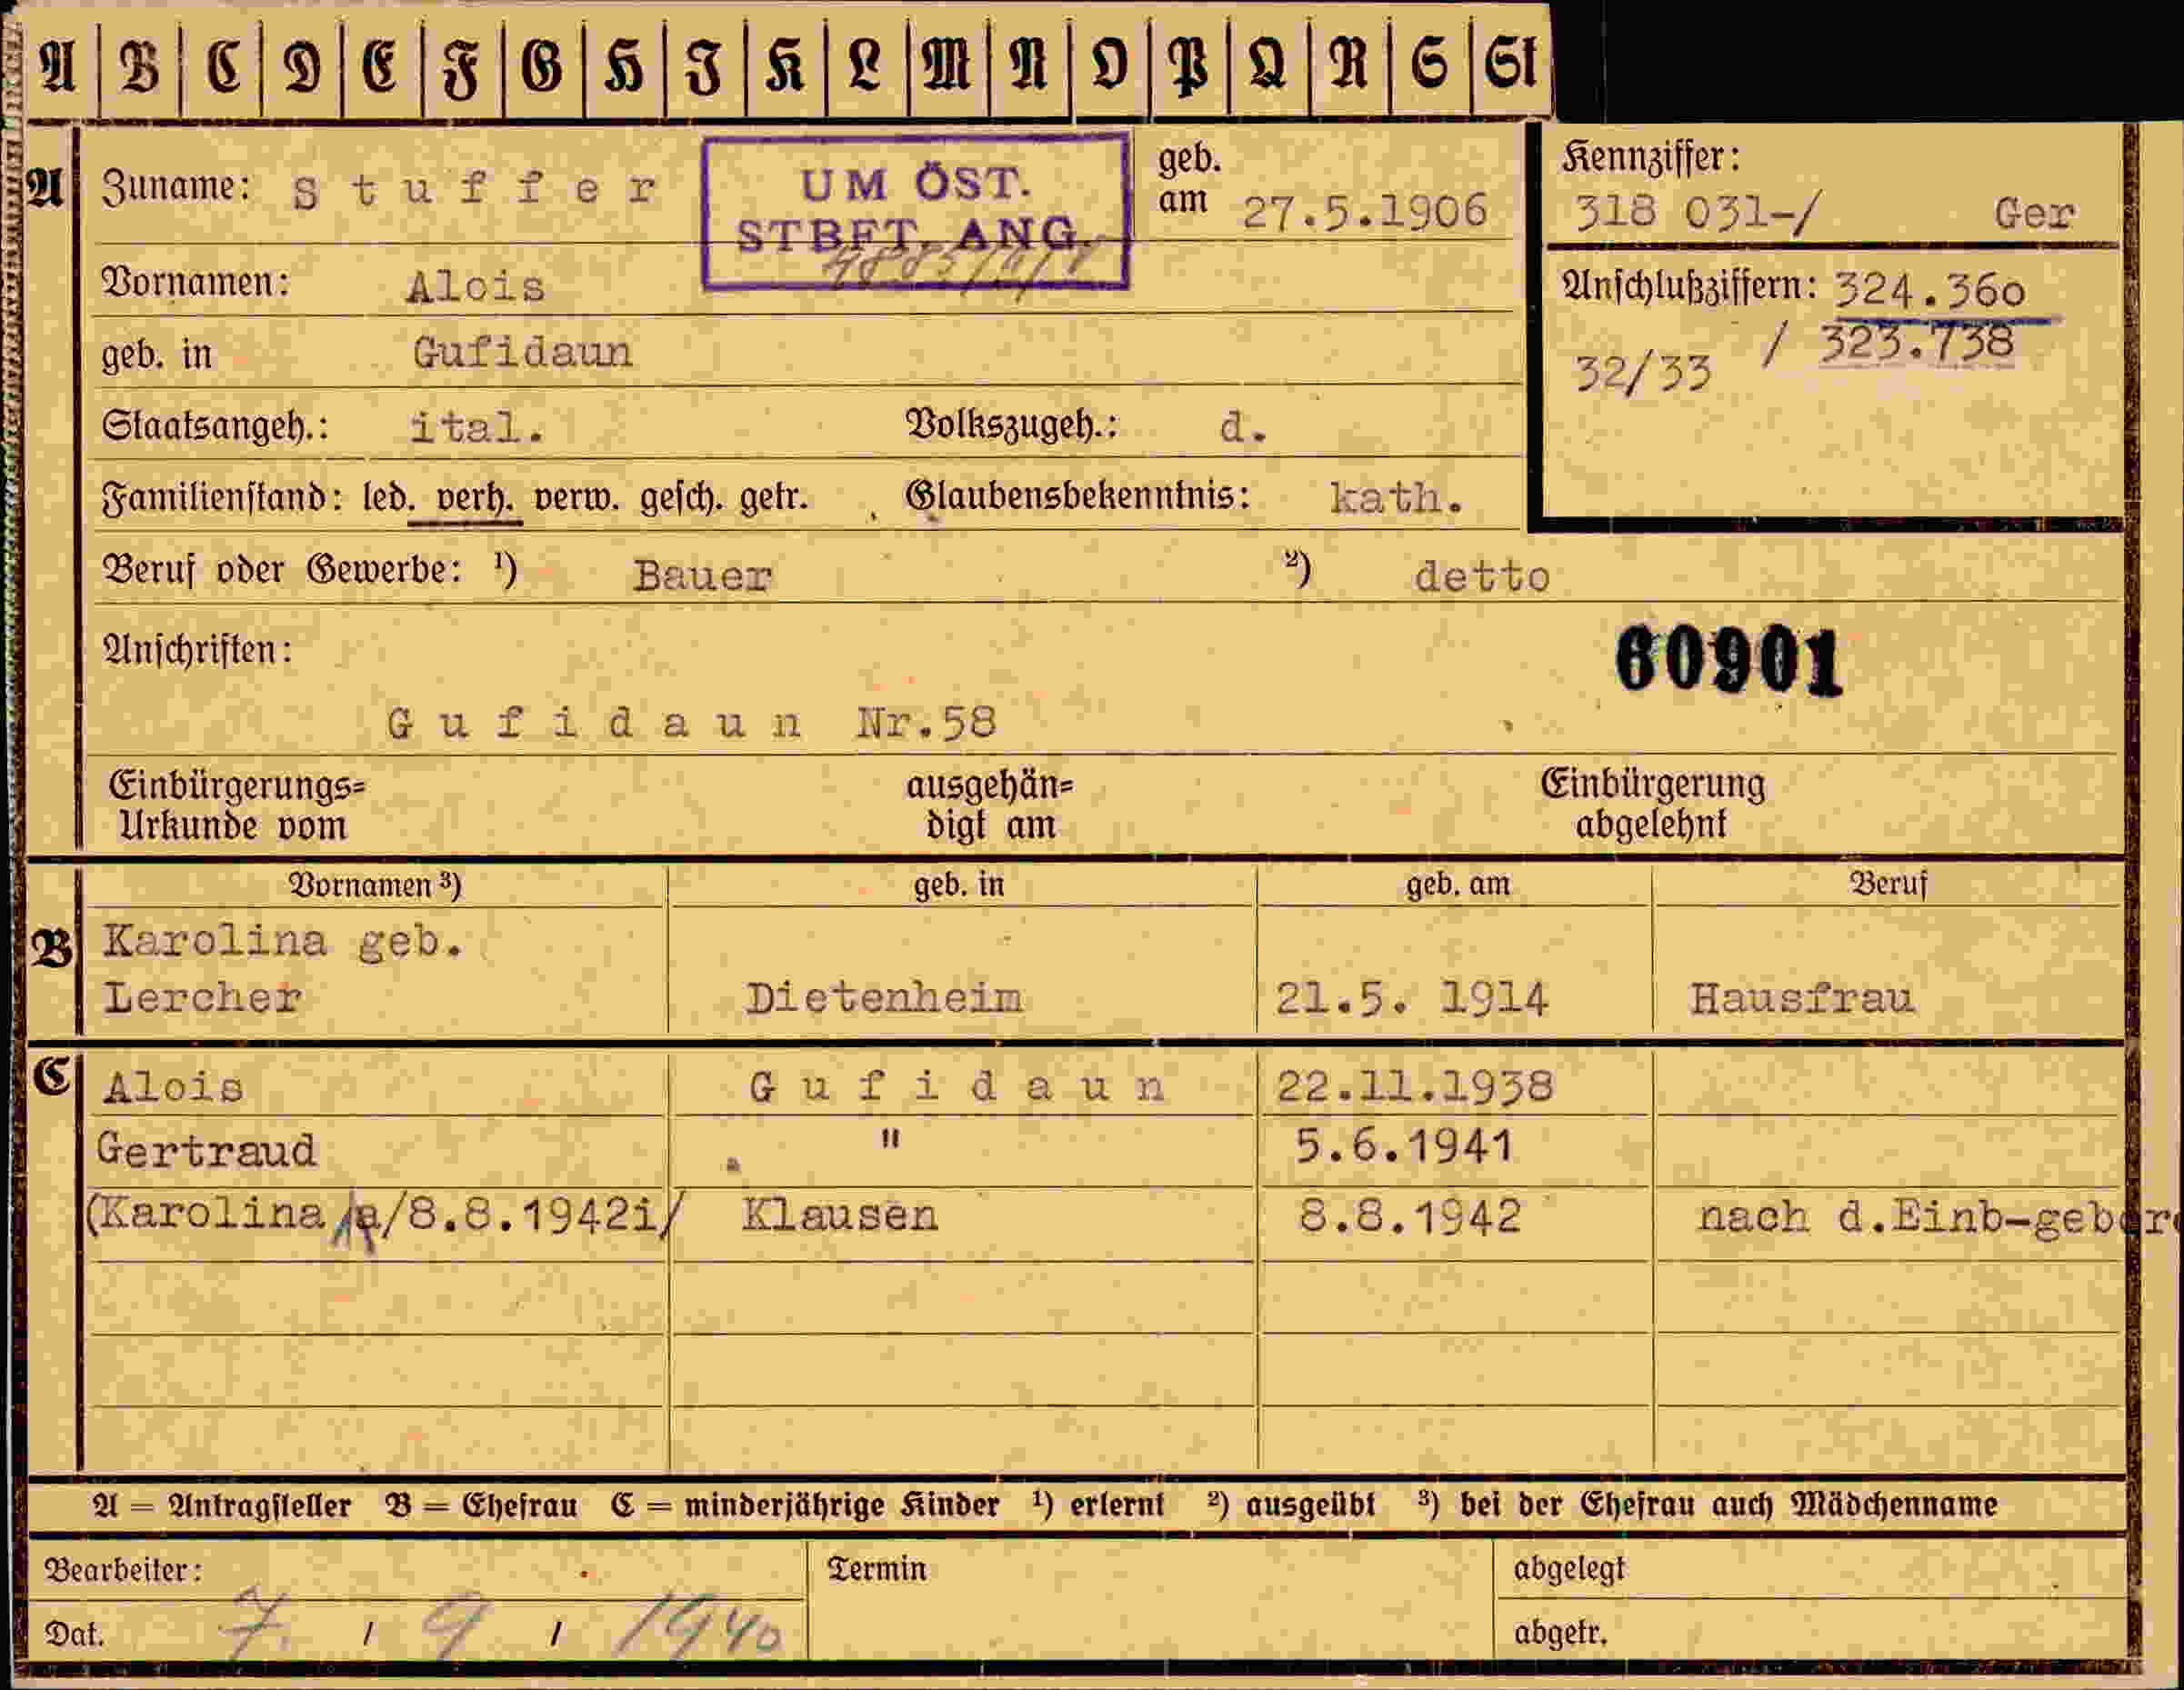 A B C D E F G H I K L M N O P Q R S St
A Zuname: S t u f f e r
UM ÖST.
STBFT. ANG.
geb.
am 27.5.1906
Kennziffer:
318 031-/ Ger
Vornamen: Alois
Anschlußziffern: 324.360
32/33 / 323.738
geb. in Gufidaun
Staatsangeh.: ital. Volkszugeh.: d.
Familienstand: led. verh. verw. gesch. getr. Glaubensbekenntnis: kath.
Beruf oder Gewerbe: ¹) Bauer ²) detto
Anschriften:
60901
G u f i d a u n Nr.58
Einbürgerungs= ausgehän= Einbürgerung
Urkunde vom digt am abgelehnt
Vornamen ³) geb. in geb. am Beruf
B Karolina geb.
Lercher Dietenheim 21.5. 1914 Hausfrau
C Alois G u f i d a u n 22.11.1938
Gertraud " 5.6.1941
(Karolina /8.8.1942i/ Klausen 8.8.1942 nach d.Einb-gebor
A = Antragsteller B = Ehefrau C = minderjährige Kinder ¹) erlernt ²) ausgeübt ³) bei der Ehefrau auch Mädchenname
Bearbeiter: Termin abgelegt
Dat. 7. / 9 / 1940 abgetr.